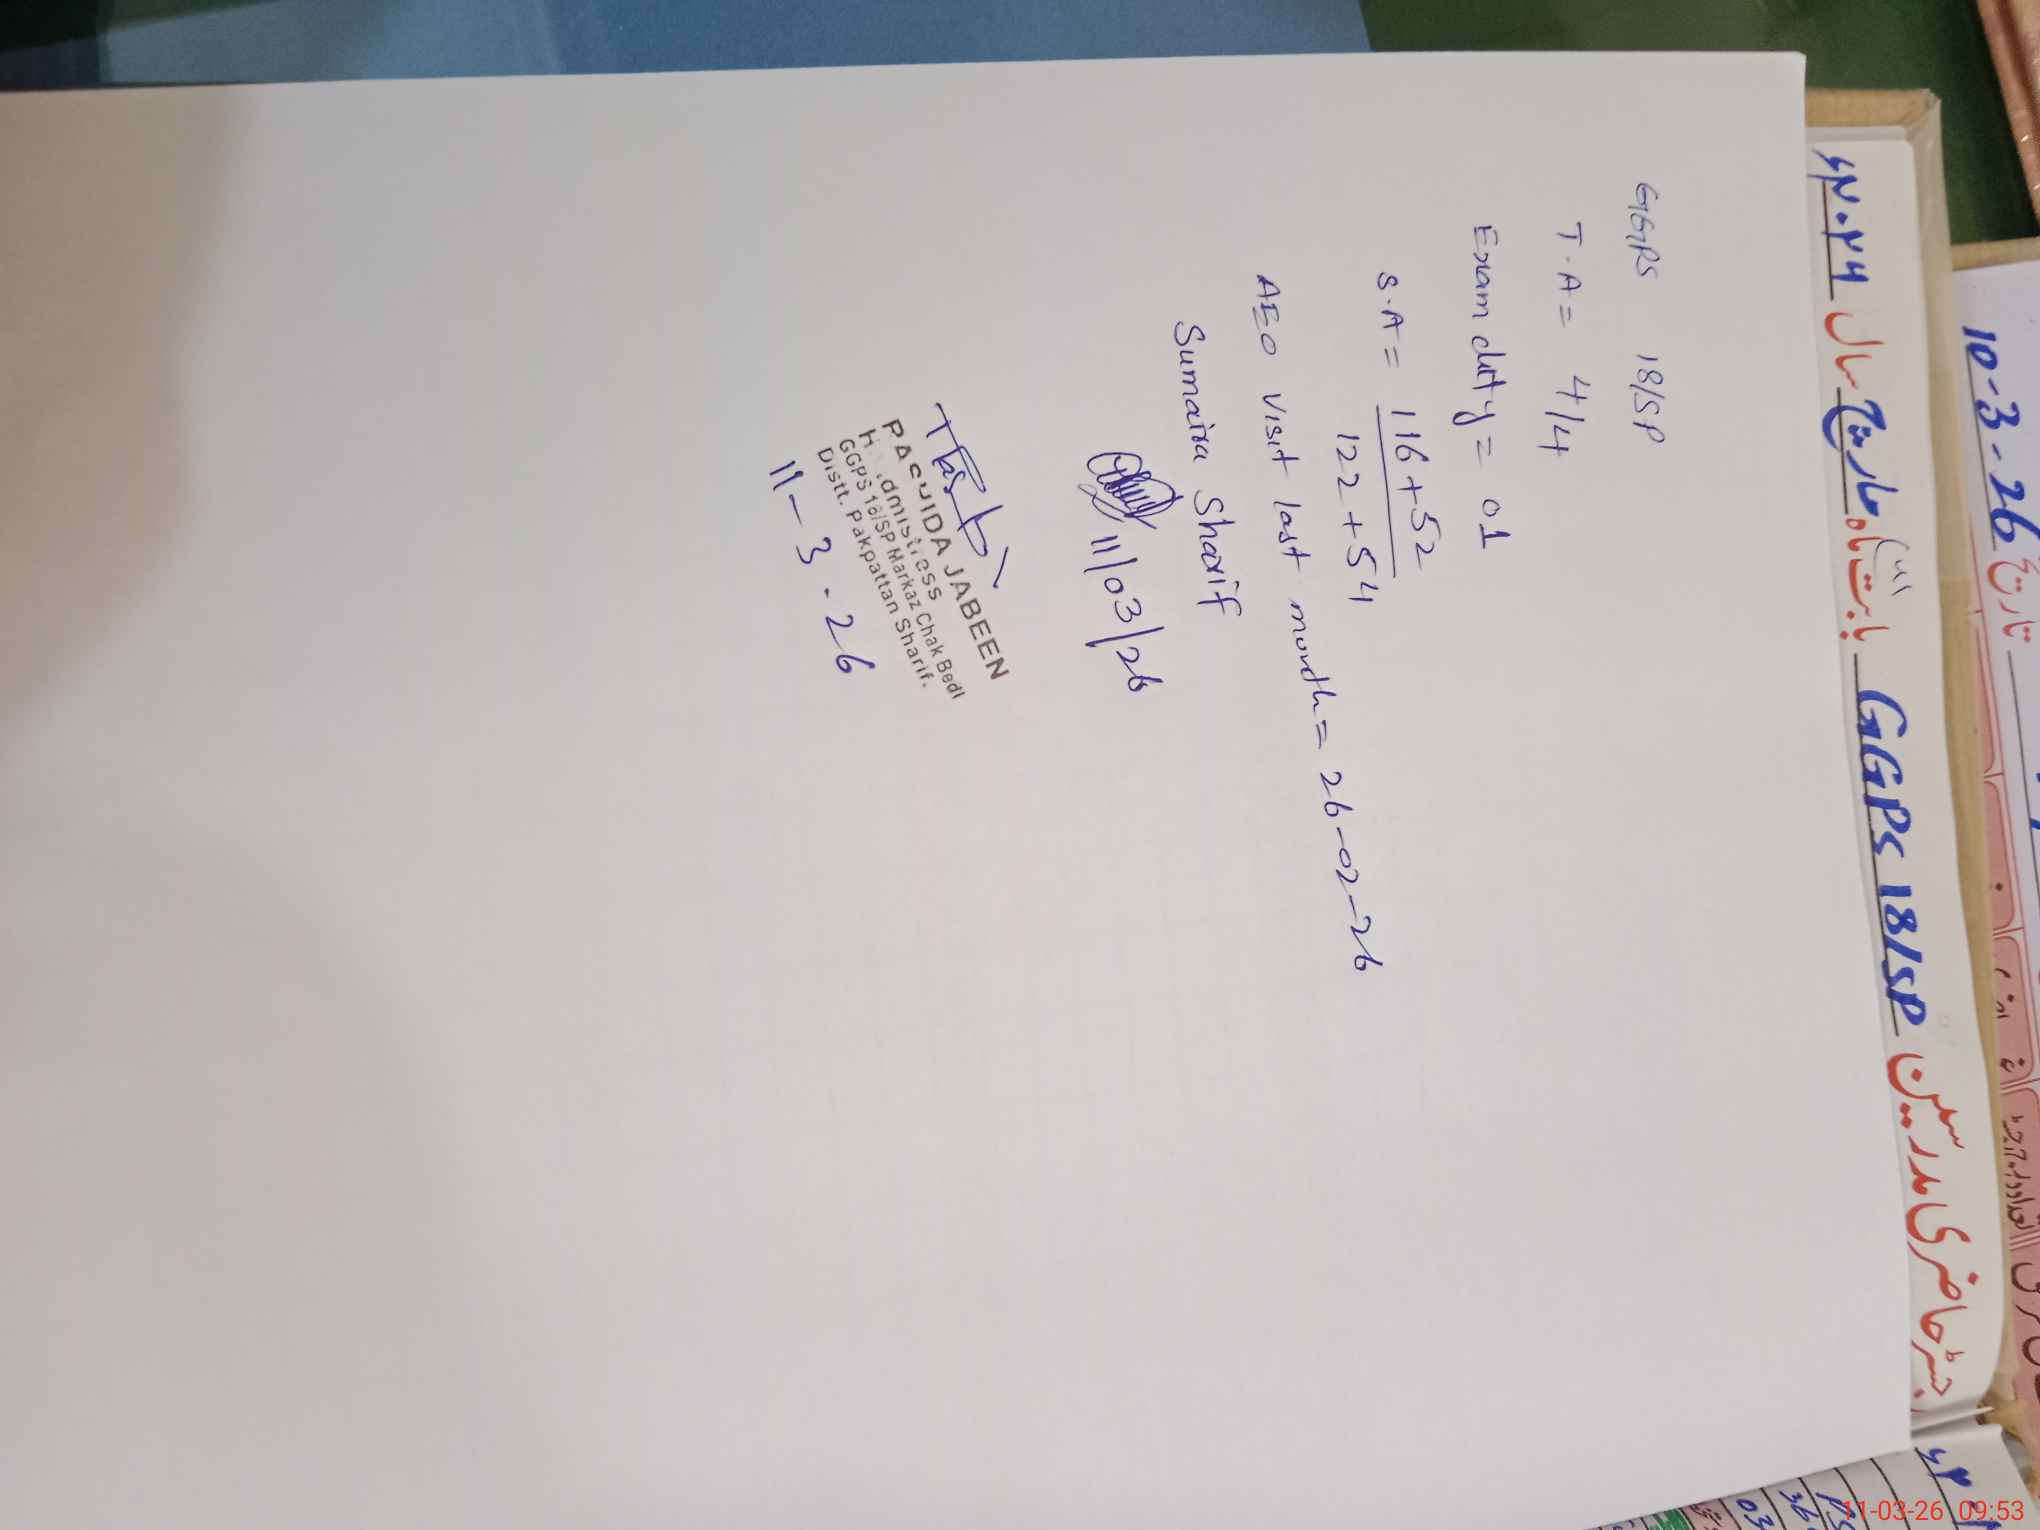 10-3-26 تاریخ
رجسٹر حاضری مدرسین GGPS 18/SP بابت ماہ مارچ سال ۲۰۲۶ء
GGPS 18/SP
T.A = 4/4
Exam duty = 01
S.A = 116+52
122+54
AEO visit last month = 26-02-26
Sumaira Sharif
11/03/26
JABEEN
GGPS 18/SP Markaz Chak Bedi
Distt. Pakpattan Sharif.
11-3-26
03
11-03-26 09:53